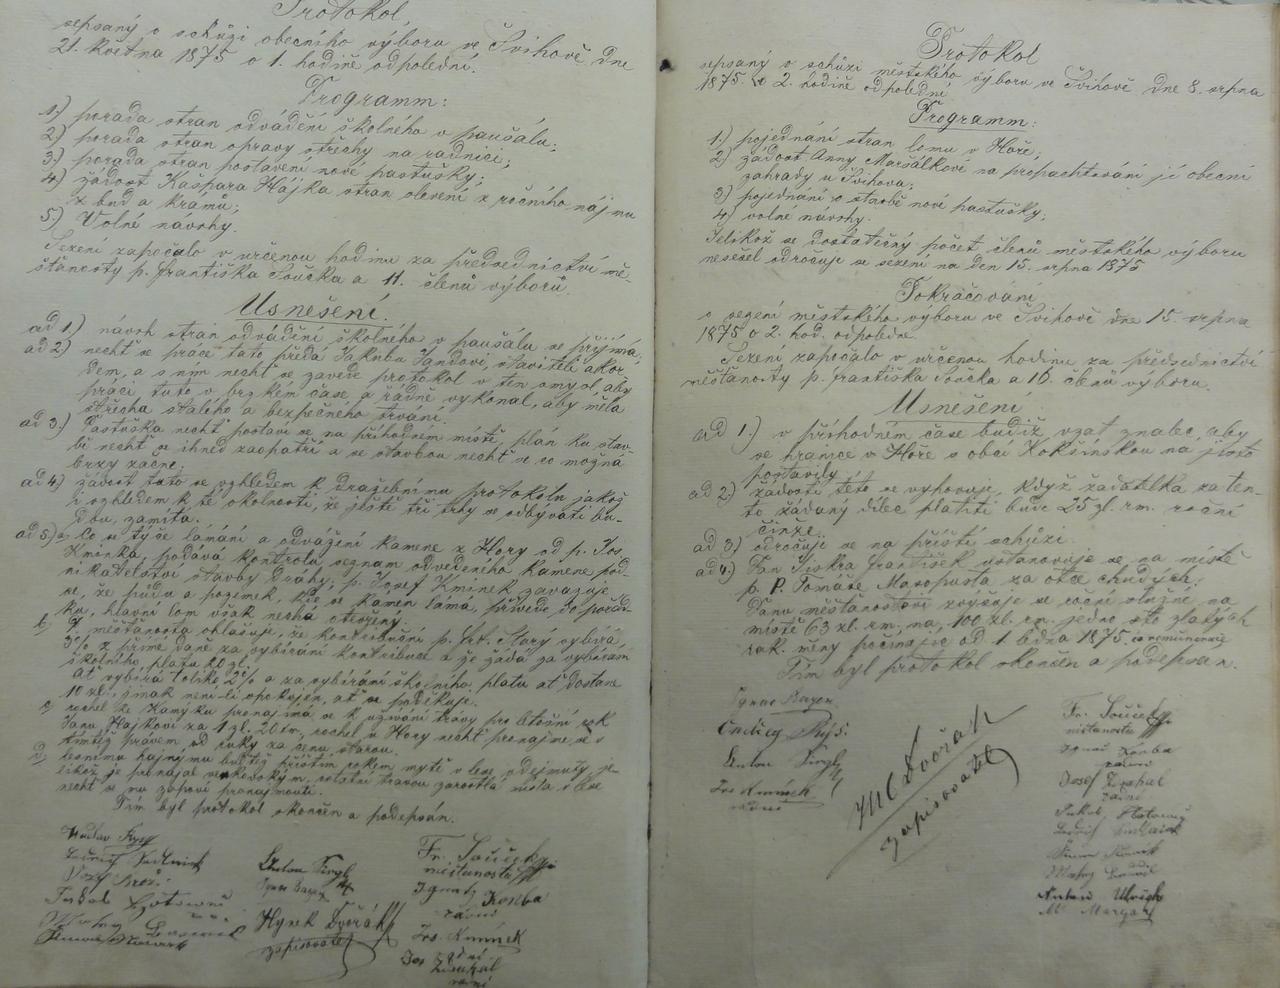 Protokol,
sepsaný o schůzi obecního výboru ve Švihově dne
21. května 1875 o 1. hodině odpolední.
Programm:
1.) porada stran odvádění školného v paušálu;
2.) porada stran opravy střechy na radnici;
3.) porada stran postavení nové pastušky;
4.) žádost Kašpara Hájka stran slevení z ročního nájmu
z bud a krámů;
5.) Volné návrhy.
Sezení započalo v určenou hodinu za předsednictví mě-
šťanosty p. Františka Součka a 11. členů výborů.
Usnešení.
ad 1.) návrh stran odvádění školného v paušálu se přijímá;
ad 2.) nechť se práce tato předá Jakubu Ignazovi, staviteli akor-
dem, a s ním nechť se zavede protokol v ten smysl, aby
práci tuto v brzkém čase a řádně vykonal, aby měla
střecha stálého a bezpečného trvání.
ad 3.) Pastuška nechť postaví se na příhodném místě, plán ku stav-
bě nechť se ihned zaopatří a se stavbou nechť se co možná
brzy začne;
ad 4.) žádost tato se vzhledem k dražebnímu protokolu jakož
i vzhledem k té okolnosti, že ještě tři trhy se odbývati bu-
dou, zamítá.
ad 5.) a, Co se týče lámání a odvážení kamene z Hory od p. Jos.
Kmínka, podává kontrolu seznam odvedeného kamene pod-
nikatelství stavby dráhy; p. Josef Kmínek zavazuje
se, že půdu a pozemek, kde se kamen láma, přivede do pořád-
ku, hlavní lom však nechá otevřený.
b, P. měšťanosta ohlašuje, že kontribuční p. Frt. Starý vybírá
3% z přímé daně za vybírání kontribuce a že žádá za vybírání
školního platu 20 zl.
Ať vybírá toliko 2% a za vybírání školního platu ať dostane
10 zl., jinak není-li spokojen, ať se poděkuje.
c, rychel že Kamýku pronajímá se k užívání trávy pro letošní rok
Janu Hájkovi za 1 zl. 20 kr., rychel v Hory nechť pronajme se
tímtéž právem od ruky za cenu starou.
d, lesnímu hajnýmu buďtež příštím rokem mýtě v lese odejmuty, je-
likož je pronajal, ostatní travou zarostlá místa v lese
nechť se mu zapoví pronajmouti.
Tím byl protokol skončen a podepsán.
Jakub
Anton Šingl
Ignac Bayer
Hynek Dvořák
zapisovatel
Fr. Souček
měšťanosta
Ignatz Konba
radní
Jos. Kmínek
radní
Jos.
radní
Protokol
sepsaný o schůzi městského výboru ve Švihově dne 8. srpna
1875. o 2. hodině odpolední
Programm:
1.) pojednání stran lomu v Hoře;
2.) žádost Anny Maršálkové na propachtování jí obecní
zahrady u Švihova;
3.) pojednání o stavbě nové pastušky;
4.) volné návrhy.
Jelikož se dostatečný počet členů městského výboru
nesešel odročuje se sezení na den 15. srpna 1875
Pokračování
o sezení městského výboru ve Švihově dne 15. srpna
1875 o 2. hod. odpoledne.
Sezení započalo v určenou hodinu za předsednictví
měšťanosty p. Františka Součka a 10. členů výboru.
Usnešení
ad 1.) v příhodném čase budiž vzat znalec, aby
se hranice v Hoře s obcí Kokšínskou na jisto
postavily
ad 2.) žádosti této se vyhovuje, když žadatelka za ten-
to žádaný dílec platiti bude 25 zl. rm. roční
činže.
ad 3.) odročuje se na příští schůzi.
ad 4.) Pan Jiskra František ustanovuje se na místě
p. P. Tomáše Masopusta za otce chudých;
Panu měšťanostovi zvyšuje se roční služné na
místě 63 zl. rm. na 100 zl. rm. jedno sto zlatých
rak. měny počínaje od 1 ledna 1875. co remuneraci
Tím byl protokol skončen a podepsán.
Ignac Bayer
Anton Šingl
Jos. Kmínek
radní
Dvořák
zapisovatel
Fr. Souček
měšťanosta
Ignac Konba
radní
Josef
radní
Jakub
Anton Ulrich